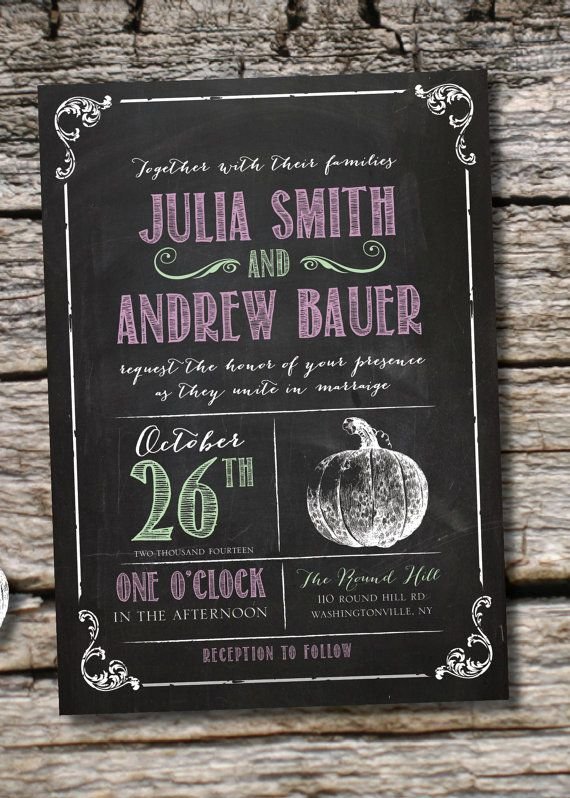 Together with their families
JULIA SMITH
AND
ANDREW BAUER
request the honor of your presence
as they unite in marraige
October
26TH
TWO THOUSAND FOURTEEN
ONE O'CLOCK
IN THE AFTERNOON
The Round Hill
110 ROUND HILL RD
WASHINGTONVILLE, NY
RECEPTION TO FOLLOW